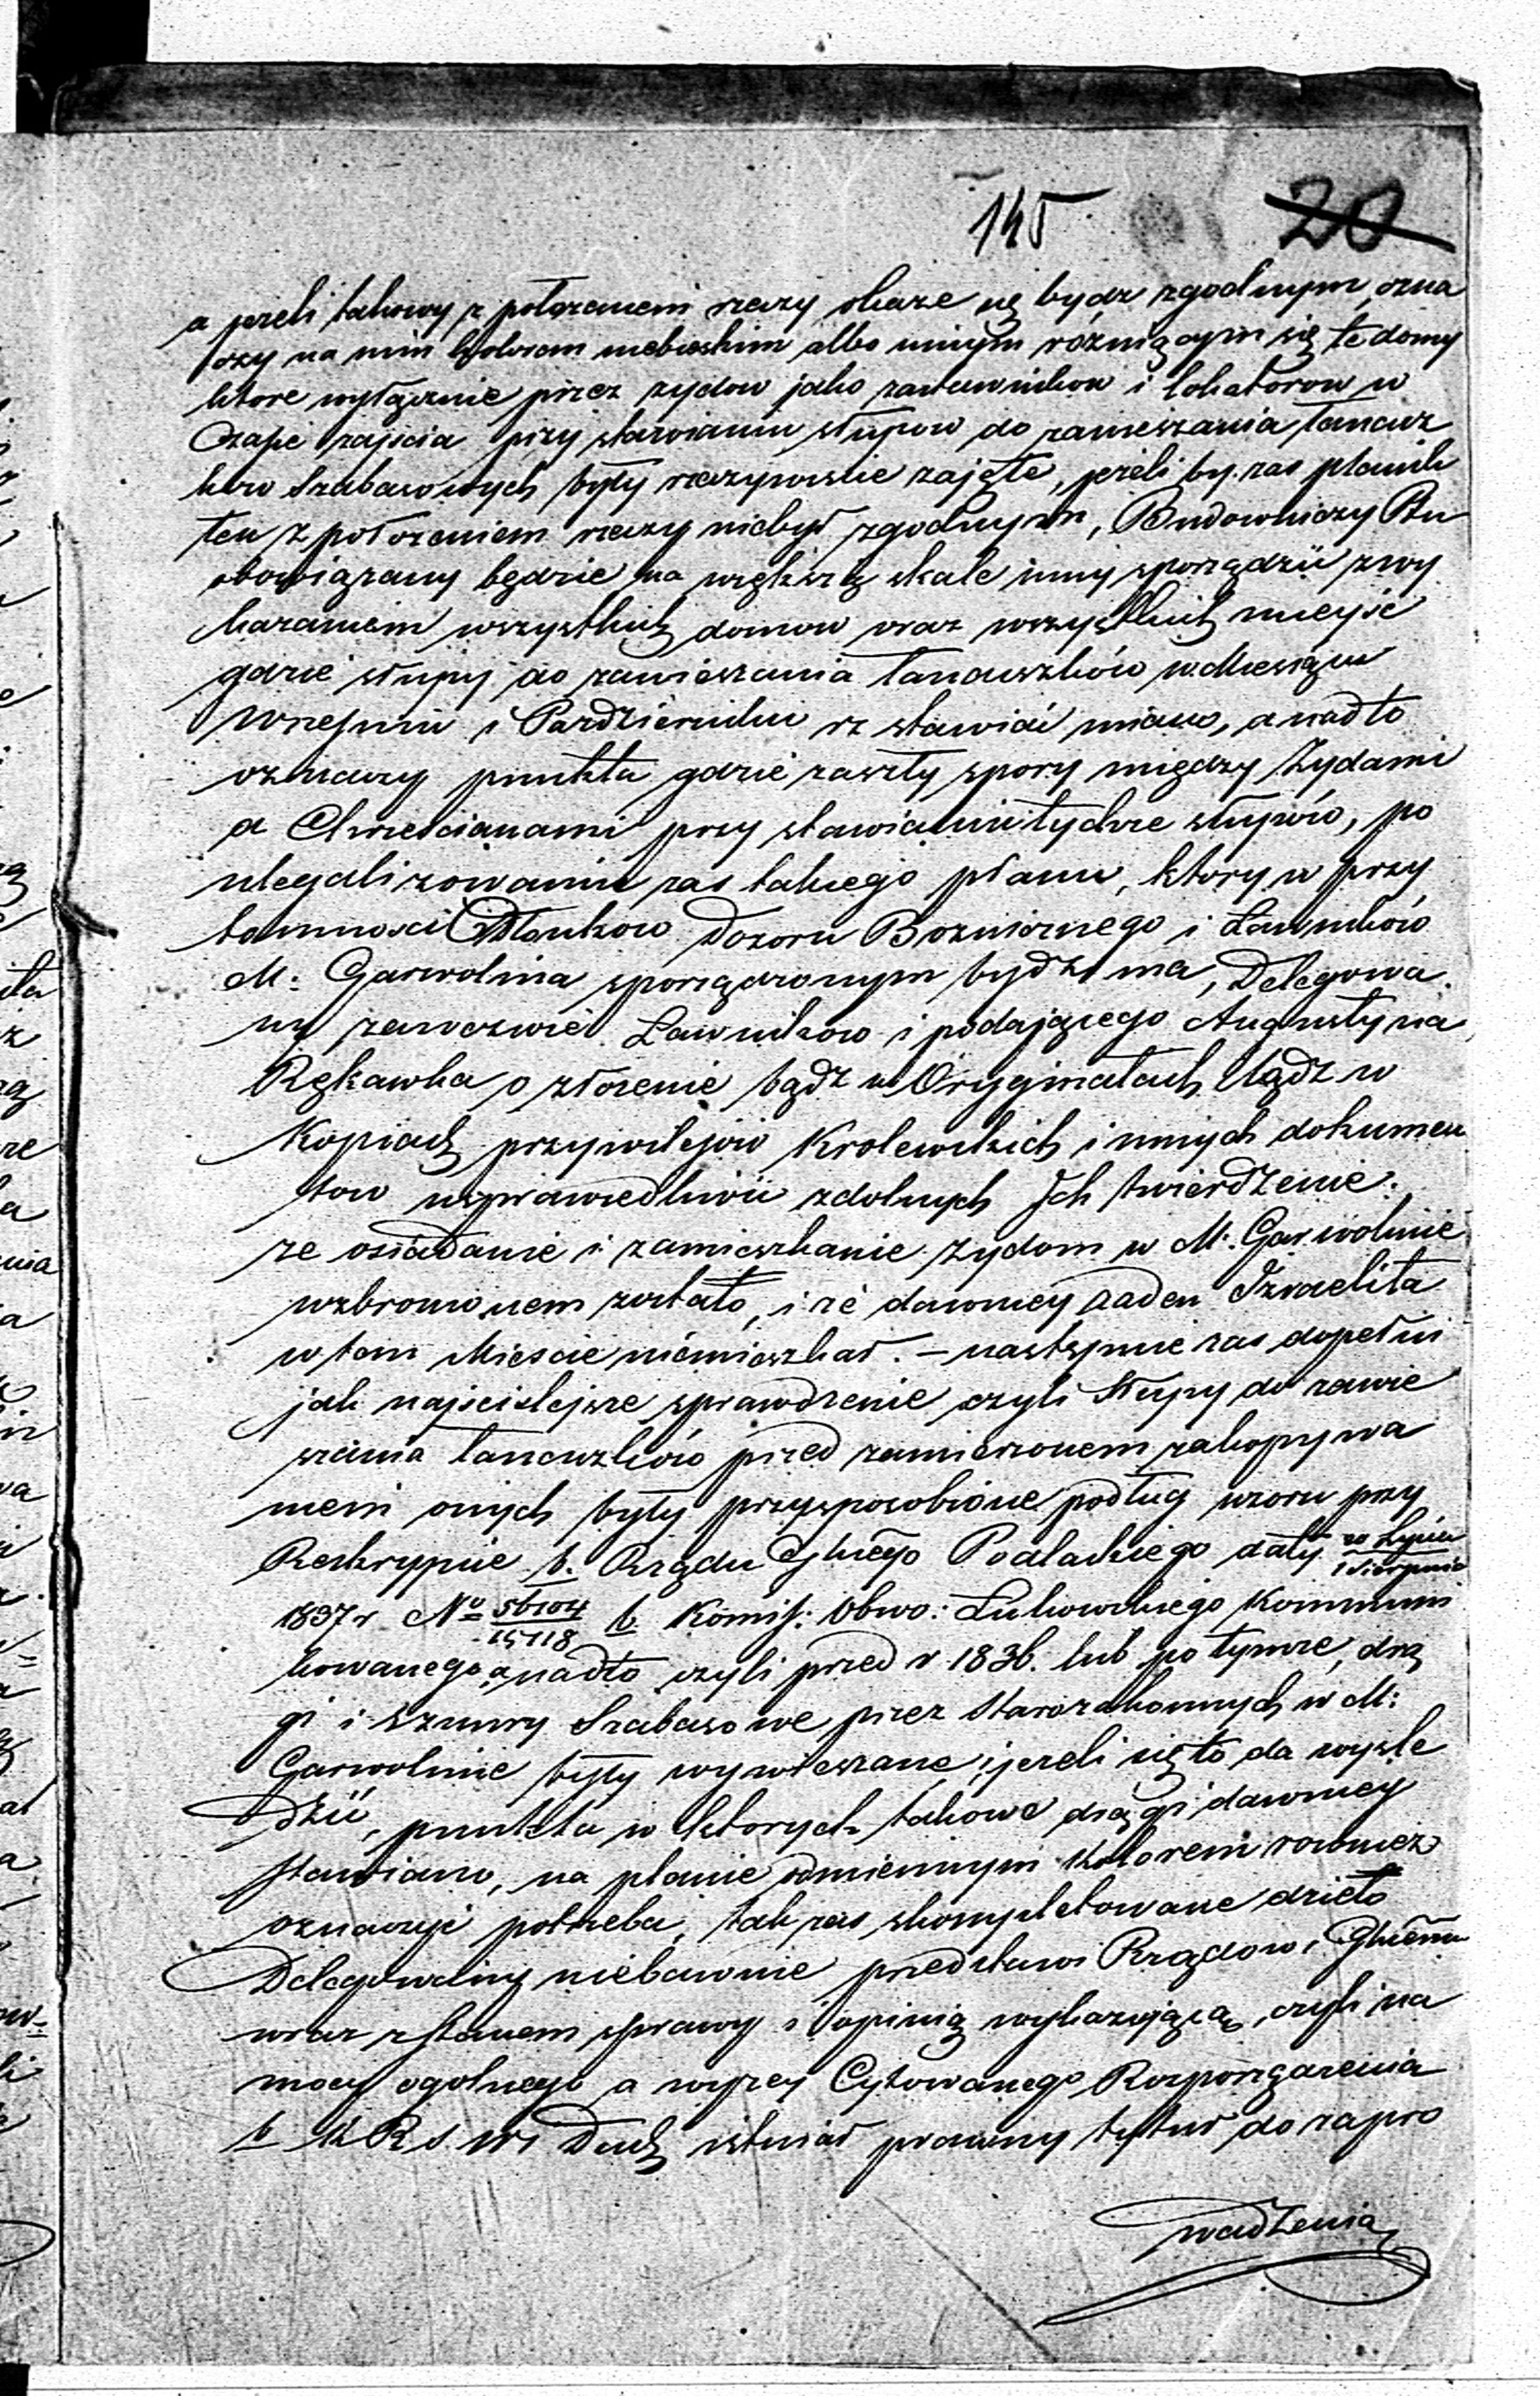 145 20
a jezeli takowy z połozeniem rzeczy okaze się bydz zgodnym, ozna
czy na nim kolorem niebieskim albo innym rózniącym się te domy
ktore wyłącznie przez zydow jako zastawnikow i lokatorow w
Czasie zajscia przy stawianiu słupow do zawieszania łancusz
kow Szabasowych były rzeczywiscie zajęte, jezeli by zas planik
ten z połozeniem rzeczy niebył zgodnym, Budowniczy Ptu
obowiązany będzie na większą skale inny sporządzić z wy
kazaniem wszystkich domow oraz wszystkich mieysc
gdzie słupy do zawieszania łancuszków w Miesiącu
Wrzesniu i Pazdzierniku rz stawiać miano, a nadto
oznaczy punkta gdzie zaszły spory między Zydami
a Chrzescianami przy stawianiu tychze słupów, po
ulegalizowaniu zas takiego planu, ktory w przy
tomnosci Członkow Dozoru Bozniczego i Ławników
M: Garwolina sporządzonym bydz ma, Delegowa
ny zawezwie Ławnikow i podającego Augustyna
Rękawka o złozenie bądz w Oryginałach bądz w
Kopiach przywilejów Krolewskich i innych dokumen
tow usprawiedliwić zdolnych Ich twierdzenie:
ze osiadanie i zamieszkanie zydom w M: Garwolinie
wzbronionem zostało, i ze dawniey zaden Izraelita
w tem Miescie niemieszkał. – następnie zas dopełni
jak najscislejsze sprawdzenie czyli Słupy do zawie
szania łancuszków przed zamierzonem zakopywa
niem onych były przysposobione podług wzoru przy
Reskrypcie b. Rządu Gbnego Podlaskiego daty 20 Lipca / 1 Sierpnia
1837 r No 56104 / 15118 b. Komis: Obwo: Łukowskiego Kommuni
kowanego, a nadto czyli przed r 1836. lub po tymze, drą
gi i sznury Szabasowe przez Starozakonnych w M:
Garwolinie były wywieszane, i jezeli się to da wysle
dzić, punkta w ktorych takowe drągi dawniey
stawiano, na planie odmiennym kolorem rowniez
oznaczyć potrzeba, tak zas skompletowane dzieło
Delegowany niebawnie przedstawi Rządowi Gbnemu
wraz z stanem sprawy i opinią wykazującą, czyli na
mocy ogolnego a wyzey Cytowanego Rozporządzenia
b K R S. W i Duch istniał prawny tytuł do zapro
wadzenia